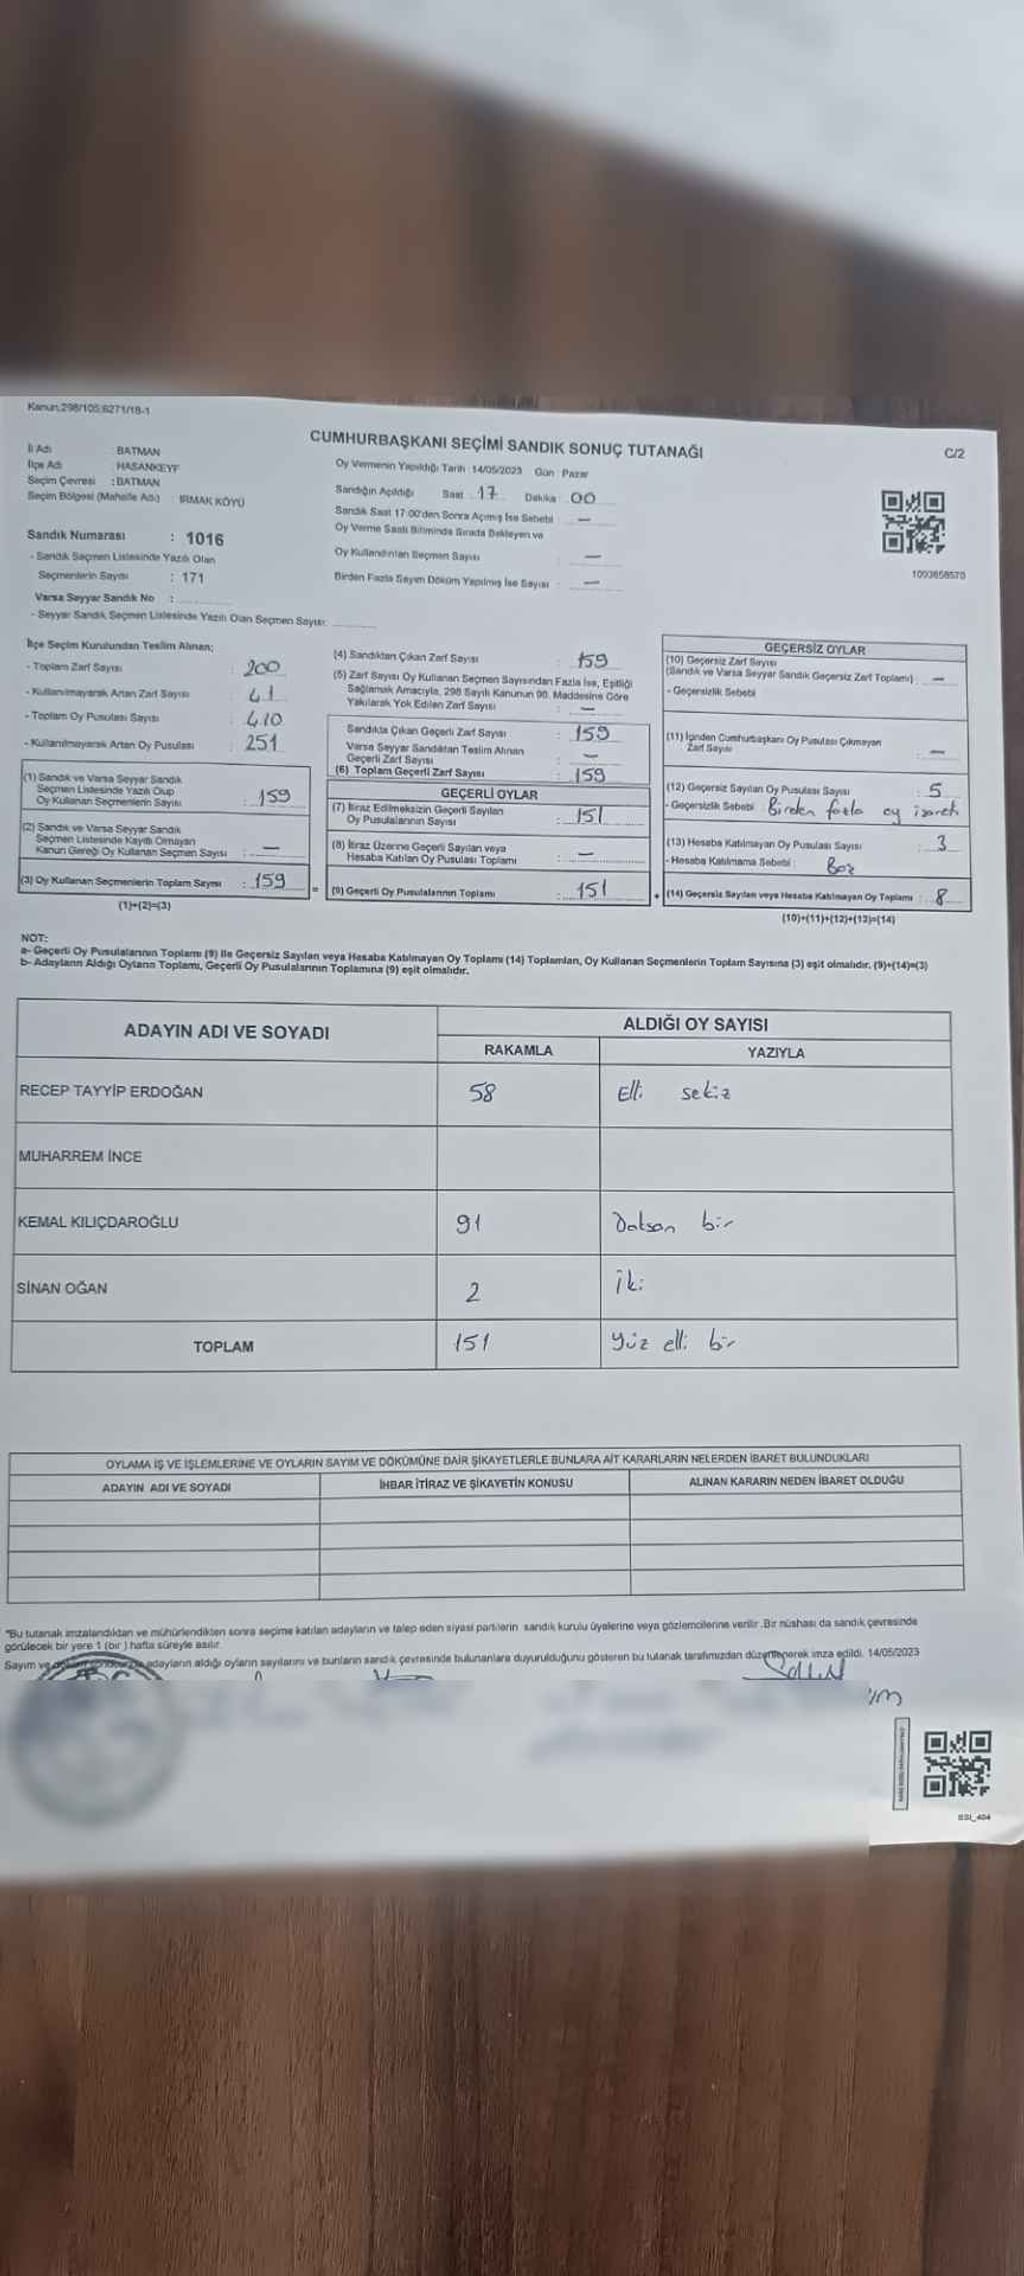 Kanun;298/105;6271/18-1
CUMHURBAŞKANI SEÇİMİ SANDIK SONUÇ TUTANAĞI
C/2
İl Adı : BATMAN
İlçe Adı HASANKEYF
Seçim Çevresi : BATMAN
Seçim Bölgesi (Mahalle Adı) : IRMAK KÖYÜ
Sandık Numarası : 1016
- Sandık Seçmen Listesinde Yazılı Olan
Seçmenlerin Sayısı : 171
Varsa Seyyar Sandık No :
- Seyyar Sandık Seçmen Listesinde Yazılı Olan Seçmen Sayısı:
Oy Vermenin Yapıldığı Tarih :14/05/2023 Gün : Pazar
Sandığın Açıldığı Saat 17 Dakika : 00
Sandık Saat 17:00'den Sonra Açımış İse Sebebi : —
Oy Verme Saati Bitiminde Sırada Bekleyen ve
Oy Kullandırılan Seçmen Sayısı : —
Birden Fazla Sayım Döküm Yapılmış İse Sayısı : —
1093658570
İlçe Seçim Kurulundan Teslim Alınan;
- Toplam Zarf Sayısı : 200
- Kullanılmayarak Artan Zarf Sayısı : 41
- Toplam Oy Pusulası Sayısı : 410
- Kullanılmayarak Artan Oy Pusulası : 251
(1) Sandık ve Varsa Seyyar Sandık
Seçmen Listesinde Yazılı Olup
Oy Kullanan Seçmenlerin Sayısı : 159
(2) Sandık ve Varsa Seyyar Sandık
Seçmen Listesinde Kayıtlı Olmayan
Kanun Gereği Oy Kullanan Seçmen Sayısı : —
(3) Oy Kullanan Seçmenlerin Toplam Sayısı : 159
(1)+(2)=(3)
(4) Sandıktan Çıkan Zarf Sayısı : 159
(5) Zarf Sayısı Oy Kullanan Seçmen Sayısından Fazla İse, Eşitliği
Sağlamak Amacıyla, 298 Sayılı Kanunun 98. Maddesine Göre
Yakılarak Yok Edilen Zarf Sayısı : —
Sandıkta Çıkan Geçerli Zarf Sayısı : 159
Varsa Seyyar Sandıktan Teslim Alınan
Geçerli Zarf Sayısı : —
(6) Toplam Geçerli Zarf Sayısı : 159
GEÇERLİ OYLAR
(7) İtiraz Edilmeksizin Geçerli Sayılan
Oy Pusulalarının Sayısı : 151
(8) İtiraz Üzerine Geçerli Sayılan veya
Hesaba Katılan Oy Pusulası Toplamı : —
= (9) Geçerli Oy Pusulalarının Toplamı : 151
GEÇERSİZ OYLAR
(10) Geçersiz Zarf Sayısı
(Sandık ve Varsa Seyyar Sandık Geçersiz Zarf Toplamı) : —
- Geçersizlik Sebebi
(11) İçinden Cumhurbaşkanı Oy Pusulası Çıkmayan
Zarf Sayısı : —
(12) Geçersiz Sayılan Oy Pusulası Sayısı : 5
- Geçersizlik Sebebi Birden fazla oy işareti
(13) Hesaba Katılmayan Oy Pusulası Sayısı : 3
- Hesaba Katılmama Sebebi : Boş
+ (14) Geçersiz Sayılan veya Hesaba Katılmayan Oy Toplamı : 8
(10)+(11)+(12)+(13)=(14)
NOT:
a- Geçerli Oy Pusulalarının Toplamı (9) ile Geçersiz Sayılan veya Hesaba Katılmayan Oy Toplamı (14) Toplamları, Oy Kullanan Seçmenlerin Toplam Sayısına (3) eşit olmalıdır. (9)+(14)=(3)
b- Adayların Aldığı Oyların Toplamı, Geçerli Oy Pusulalarının Toplamına (9) eşit olmalıdır.
ADAYIN ADI VE SOYADI ALDIĞI OY SAYISI
RAKAMLA YAZIYLA
RECEP TAYYİP ERDOĞAN 58 Elli sekiz
MUHARREM İNCE
KEMAL KILIÇDAROĞLU 91 Doksan bir
SİNAN OĞAN 2 İki
TOPLAM 151 Yüz elli bir
OYLAMA İŞ VE İŞLEMLERİNE VE OYLARIN SAYIM VE DÖKÜMÜNE DAİR ŞİKAYETLERLE BUNLARA AİT KARARLARIN NELERDEN İBARET BULUNDUKLARI
ADAYIN ADI VE SOYADI İHBAR İTİRAZ VE ŞİKAYETİN KONUSU ALINAN KARARIN NEDEN İBARET OLDUĞU
"Bu tutanak imzalandıktan ve mühürlendikten sonra seçime katılan adayların ve talep eden siyasi partilerin sandık kurulu üyelerine veya gözlemcilerine verilir. Bir nüshası da sandık çevresinde
görülecek bir yere 1 (bir ) hafta süreyle asılır.
Sayım ve adayların aldığı oyların sayılarını ve bunların sandık çevresinde bulunanlara duyurulduğunu gösteren bu tutanak tarafımızdan düzenlenerek imza edildi. 14/05/2023